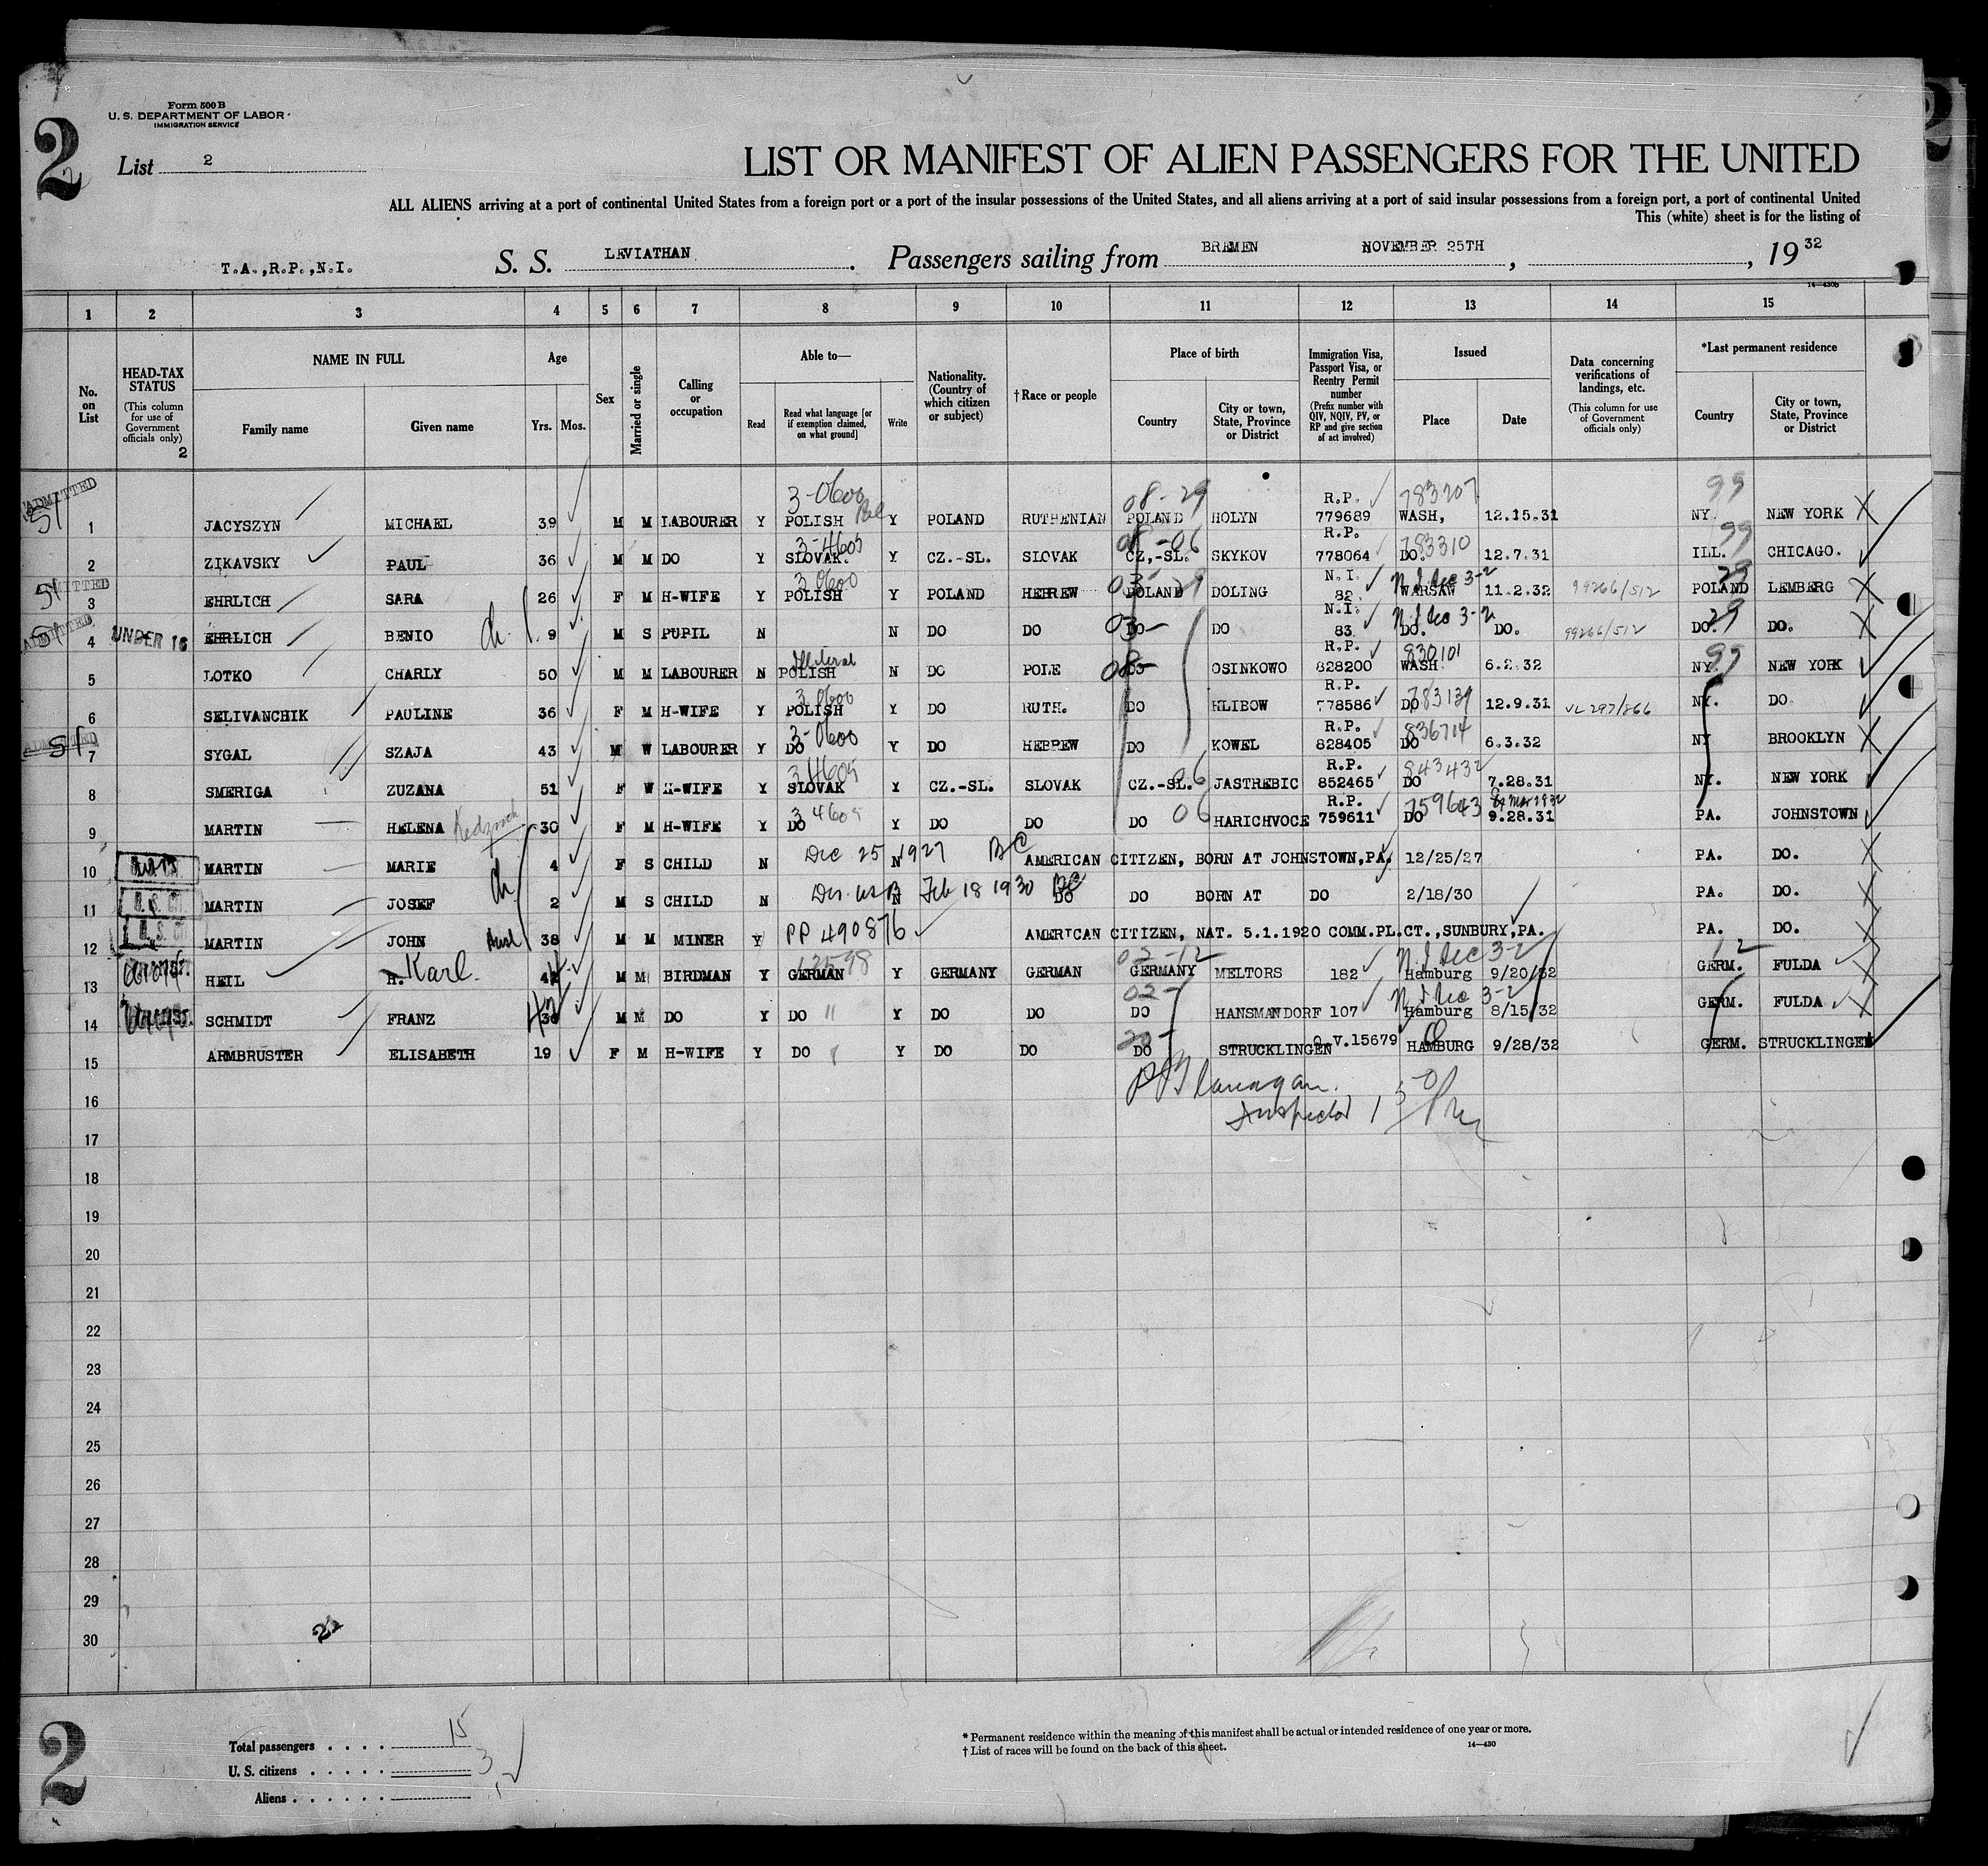 2
Form 500 B
U. S. DEPARTMENT OF LABOR
IMMIGRATION SERVICE
List 2
LIST OR MANIFEST OF ALIEN PASSENGERS FOR THE UNITED
ALL ALIENS arriving at a port of continental United States from a foreign port or a port of the insular possessions of the United States, and all aliens arriving at a port of said insular possessions from a foreign port, a port of continental United
This (white) sheet is for the listing of
T.A.,R.P.,N.I. S. S. LEVIATHAN. Passengers sailing from BREMEN NOVEMBER 25TH, , 1932
14—430b
1 2 3 4 5 6 7 8 9 10 11 12 13 14 15
No. on List
HEAD-TAX STATUS (This column for use of Government officials only) 2
NAME IN FULL Family name Given name
Age Yrs. Mos.
Sex
Married or single
Calling or occupation
Able to— Read Read what language [or if exemption claimed, on what ground] Write
Nationality. (Country of which citizen or subject)
†Race or people
Place of birth Country City or town, State, Province or District
Immigration Visa, Passport Visa, or Reentry Permit number (Prefix number with QIV, NQIV, PV, or RP and give section of act involved)
Issued Place Date
Data concerning verifications of landings, etc. (This column for use of Government officials only)
*Last permanent residence Country City or town, State, Province or District
ADMITTED 3-0600 08-29 R.P. 783207 99
1 JACYSZYN MICHAEL 39 M M LABOURER Y POLISH Y POLAND RUTHENIAN POLAND HOLYN 779689 WASH, 12.15.31 NY. NEW YORK X
3-4605 06 R.P. 783310 99
2 ZIKAVSKY PAUL 36 M M DO Y SLOVAK. Y CZ.-SL. SLOVAK CZ,-SL. SKYKOV 778064 DO. 12.7.31 ILL. CHICAGO.
ADMITTED 3 0600 N.I. N.I Sec 3-2 29
3 EHRLICH SARA 26 F M H-WIFE Y POLISH Y POLAND HEBREW POLAND DOLING 82. WARSAW 11.2.32 99266/512 POLAND LEMBERG X
ADMITTED N.I. N.I Sec 3-2 29
4 UNDER 16 EHRLICH BENIO ch. 9 M S PUPIL N N DO DO DO DO 83. DO. DO. 99266/512 DO. DO. X
R.P. 830101 99
5 LOTKO CHARLY 50 M M LABOURER N POLISH N DO POLE DO OSINKOWO 828200 WASH. 6.2.32 NY. NEW YORK
3 0600 R.P. 783139
6 SELIVANCHIK PAULINE 36 F M H-WIFE Y POLISH Y DO RUTH. DO KLIBOW 778586 DO 12.9.31 VL 297/866 NY. DO
ADMITTED 3-0600 R.P. 836714
7 SYGAL SZAJA 43 M W LABOURER Y DO Y DO HEBREW DO KOWEL 828405 DO 6.3.32 NY BROOKLYN X
3 4605 06 R.P. 843432
8 SMERIGA ZUZANA 51 F W H-WIFE Y SLOVAK Y CZ.-SL. SLOVAK CZ.-SL. JASTREBIC 852465 DO 7.28.31 NY. NEW YORK
3 4605 06 R.P. 759643
9 MARTIN HELENA 30 F M H-WIFE Y DO Y DO DO DO HARICHVOCE 759611 DO 9.28.31 PA. JOHNSTOWN
Dec 25 1927 BC
10 MARTIN MARIE 4 F S CHILD N N AMERICAN CITIZEN, BORN AT JOHNSTOWN,PA. 12/25/27 PA. DO. X
Feb 18 1930 BC
11 MARTIN JOSEF ch 2 M S CHILD N N DO DO BORN AT DO 2/18/30 PA. DO. X
12 MARTIN JOHN 38 M M MINER Y PP 490876 AMERICAN CITIZEN, NAT. 5.1.1920 COMM.PL.CT.,SUNBURY,PA. PA. DO. X
02-12 N.I Sec 3-2 12
13 HEIL H. Karl. M M BIRDMAN Y GERMAN Y GERMANY GERMAN GERMANY MELTORS 182 Hamburg 9/20/32 GERM. FULDA X
02- N.I Sec 3-2
14 SCHMIDT FRANZ M M DO Y DO " Y DO DO DO HANSMANDORF 107 Hamburg 8/15/32 GERM. FULDA X
15 ARMBRUSTER ELISABETH 19 F M H-WIFE Y DO Y DO DO DO STRUCKLINGEN Q.V.15679 HAMBURG 9/28/32 GERM. STRUCKLINGEN
16 Inspector
17
18
19
20
21
22
23
24
25
26
27
28
29
30
2
Total passengers . . . . 15
U. S. citizens . . . . . 3
Aliens . . . . . .
* Permanent residence within the meaning of this manifest shall be actual or intended residence of one year or more.
† List of races will be found on the back of this sheet. 14—430